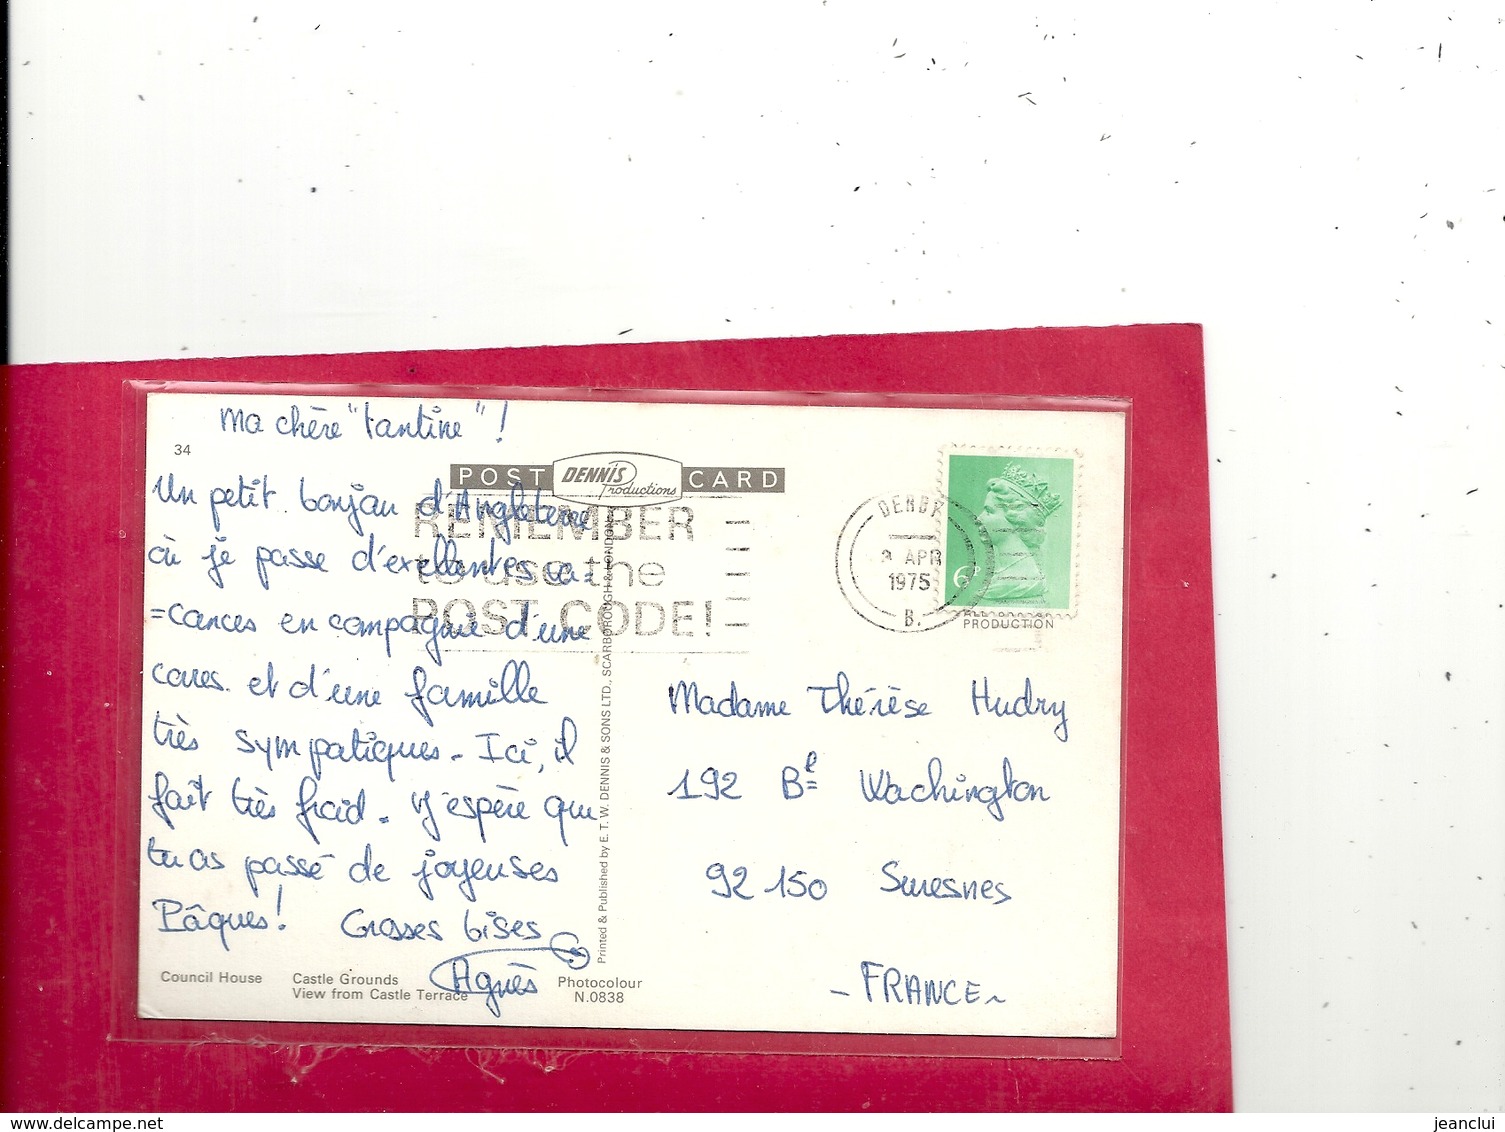 Ma chère "tantine"!
34
POST DENNIS Productions CARD
Un petit bonjour d'Angleterre
où je passe d'exellentes va=
=cances en compagnie d'une
et d'une famille
très sympatiques. Ici, il
fait très froid. J'espère que
tu as passé de joyeuses
Pâques! Grosses bises
Agnès
REMEMBER
to use the
POST CODE!
DERBY
APR
1975
B.
6P
PRODUCTION
Printed & Published by E. T. W. DENNIS & SONS LTD., SCARBOROUGH & LONDON
Madame Thérèse Hudry
192 Bd Wachington
92 150 Suresnes
- FRANCE ~
Council House Castle Grounds
View from Castle Terrace
Photocolour
N.0838
www.delcampe.net
jeanclui